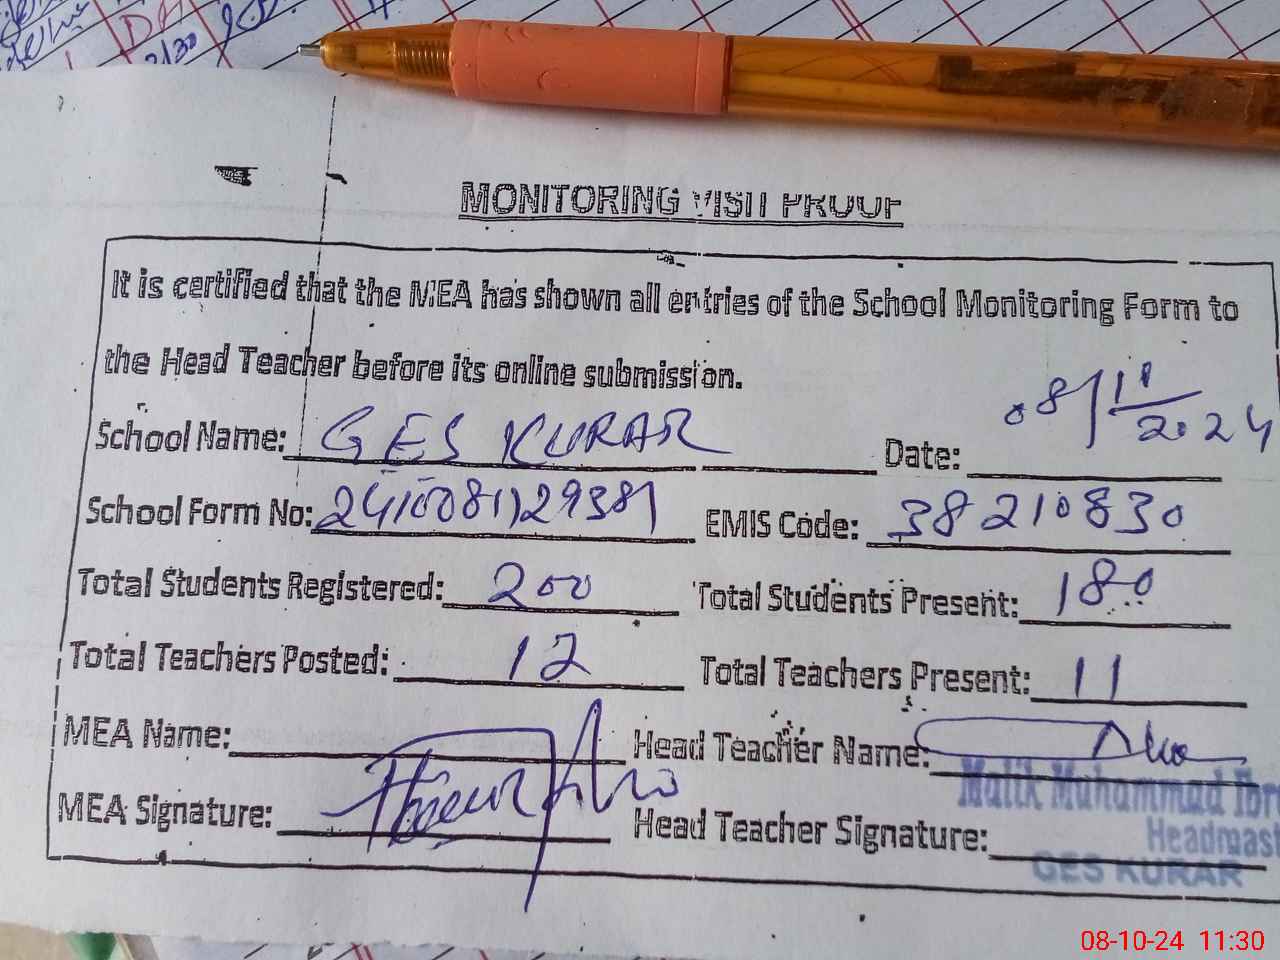 MONITORING VISIT PROOF
It is certified that the MEA has shown all entries of the School Monitoring Form to
the Head Teacher before its online submission.
School Name: GES KURAR Date: 08/11/2024
School Form No: 2410081129381 EMIS Code: 38210830
Total Students Registered: 200 Total Students Present: 180
Total Teachers Posted: 12 Total Teachers Present: 11
MEA Name: Head Teacher Name:
Malik Muhammad Ibr
MEA Signature: Head Teacher Signature:
Headmast
GES KURAR
08-10-24 11:30